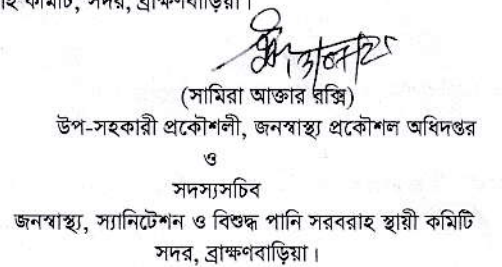 কমিটি, সদর, ব্রাক্ষণবাড়িয়া।
(সামিরা আক্তার রক্সি)
উপ-সহকারী প্রকৌশলী, জনস্বাস্থ্য প্রকৌশল অধিদপ্তর
ও
সদস্যসচিব
জনস্বাস্থ্য, স্যানিটেশন ও বিশুদ্ধ পানি সরবরাহ স্থায়ী কমিটি
সদর, ব্রাক্ষণবাড়িয়া।